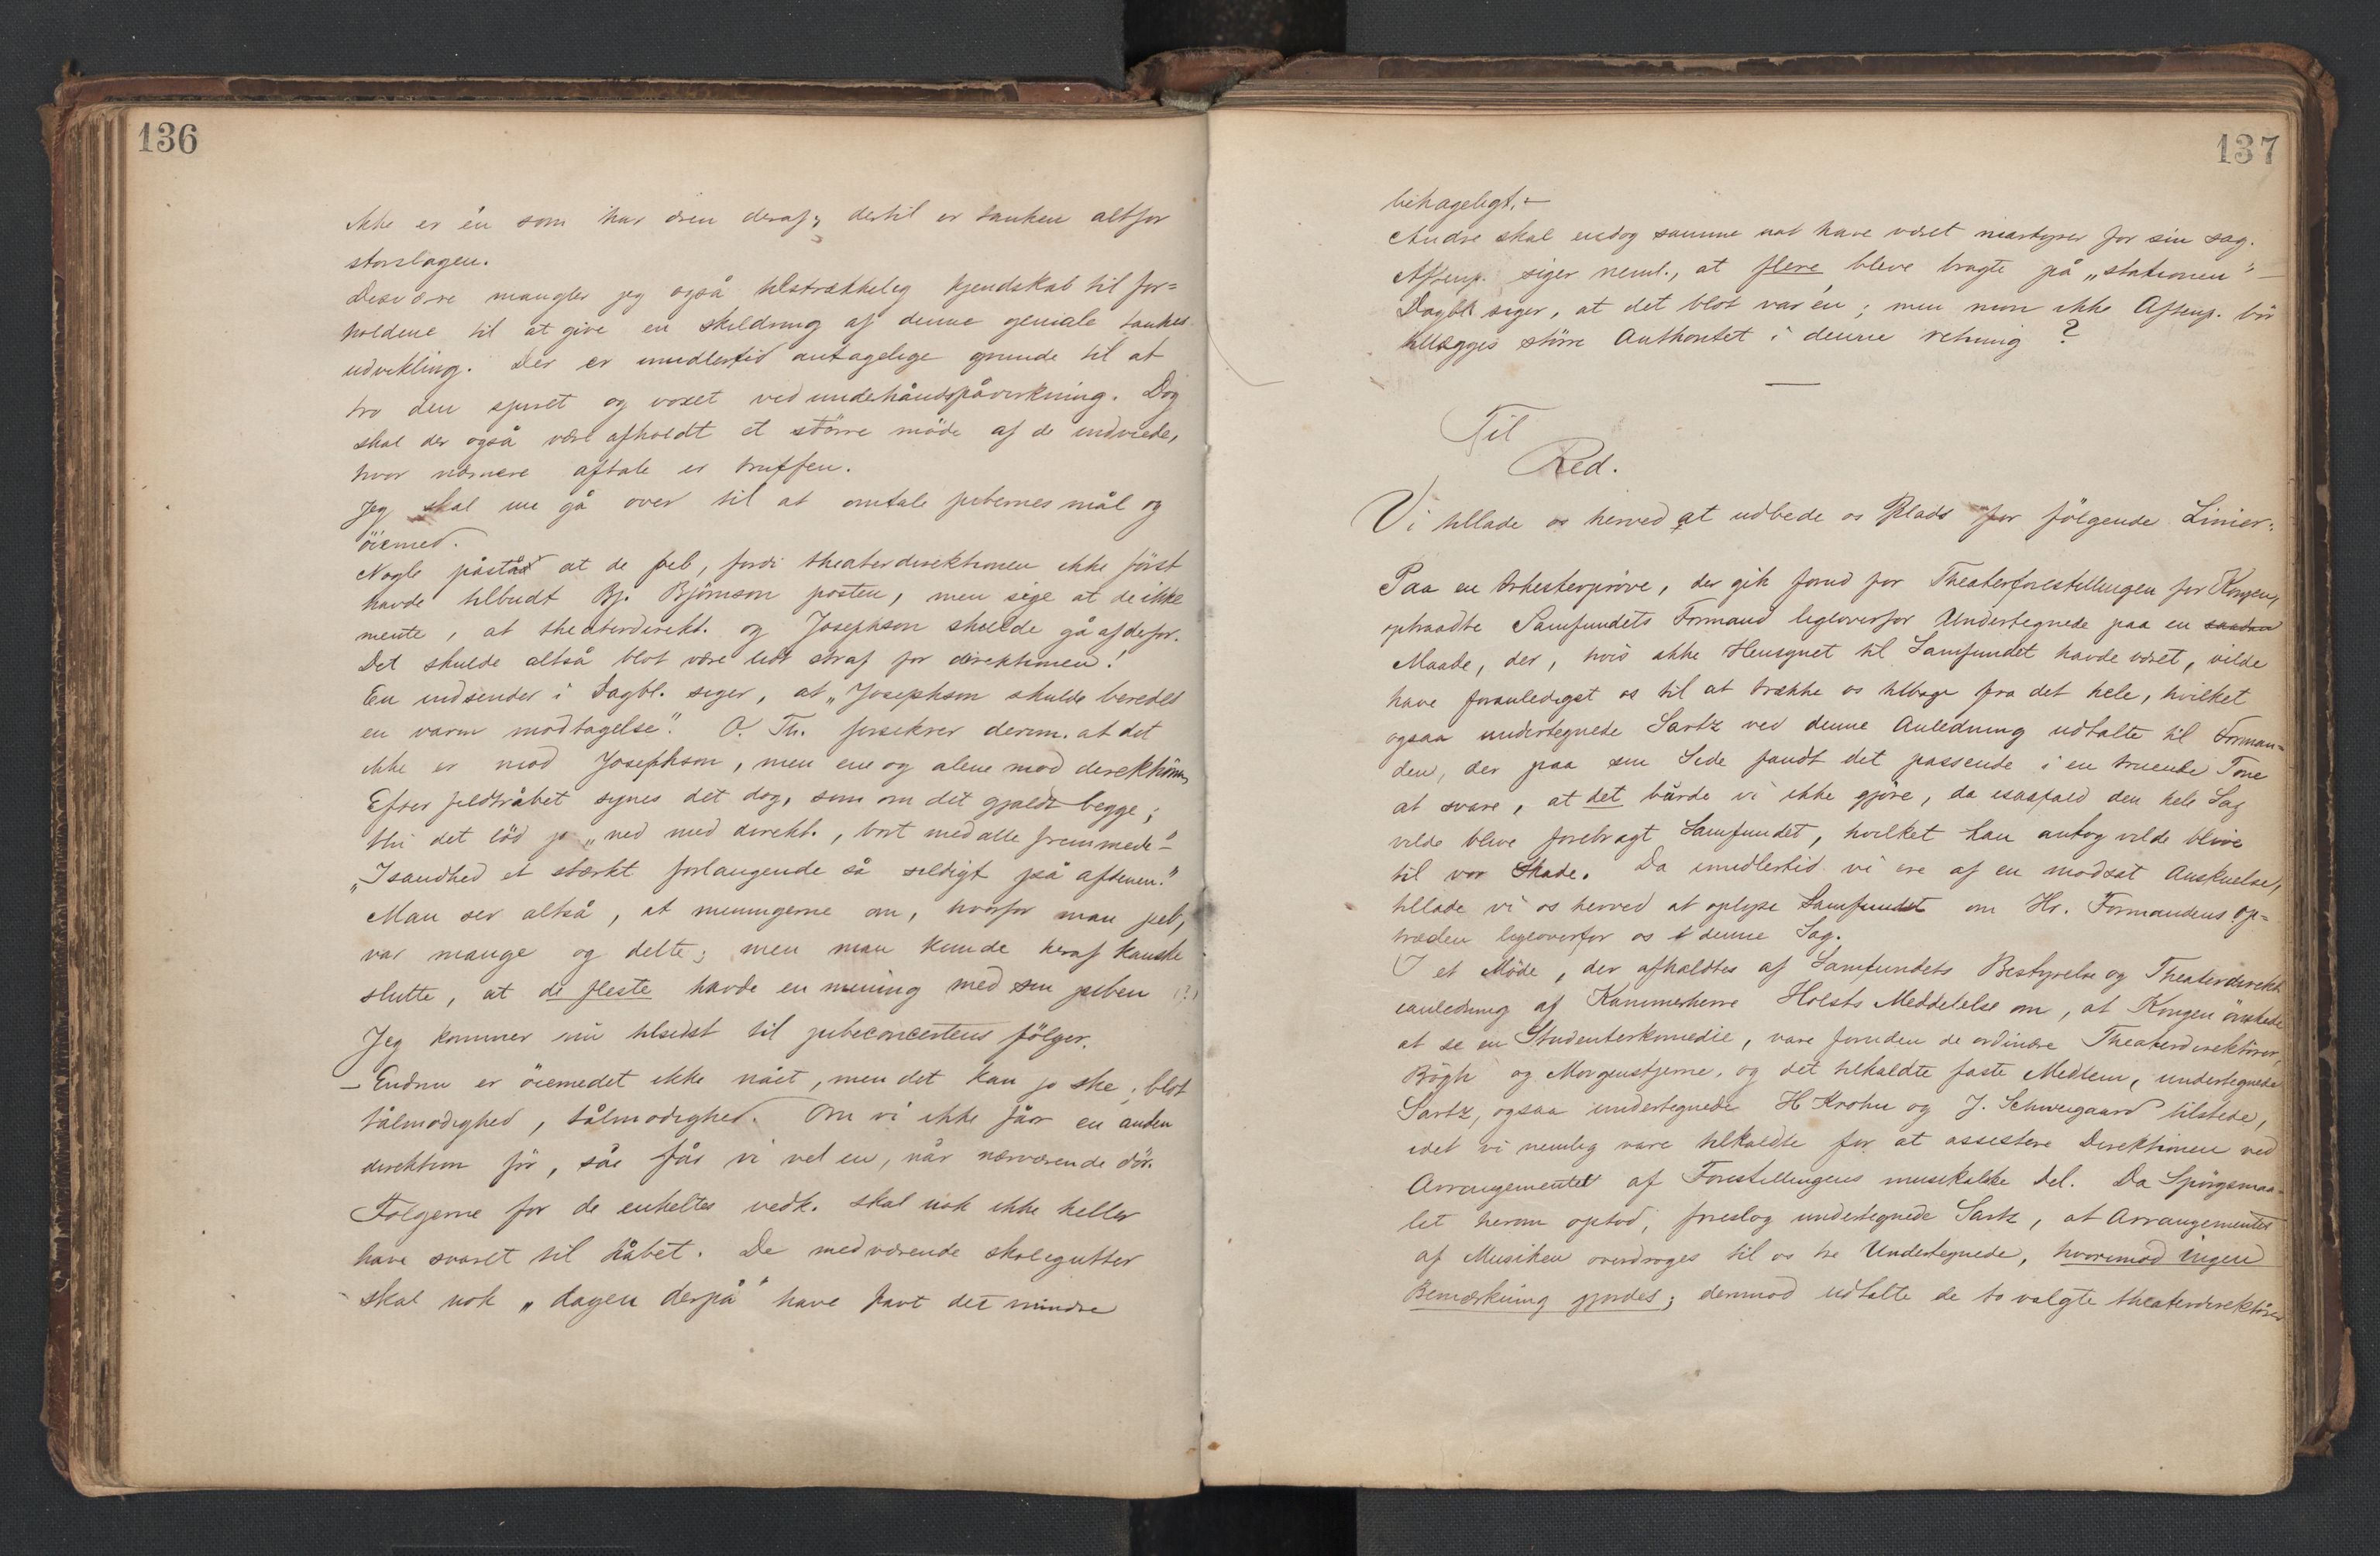 136
ikke er én som har æren deraf; dertil er tanken altfor
storslagen.
Desværre mangler jeg også tilstrækkelig kjendskab til for=
holdene til at give en skildring af denne geniale tankes
udvikling. Der er imidlertid antagelige grunde til at
tro den spiret og voxet ved underhåndspåvirkning. Dog
skal der også være afholdt et större möde af de indviede,
hvor nærmere aftale er truffen.
Jeg skal nu gå over til at omtale pibernes mål og
öiemed.
Nogle påstår at de peb, fordi theaterdirektionen ikke först
havde tilbudt Bj. Björnson posten, men sige at de ikke
mente, at theaterdirekt. og Josephson skulde gå af derfor.
Det skulde altså blot være lidt straf for direktionen!
En indsender i Dagbl. siger, at „Josephson skulde beredes
en varm modtagelse". O. Th. forsikrer derim. at det
ikke er mod Josephson, men ene og alene mod direktionen,
Efter feldtråbet synes det dog, som om det gjaldt begge;
thi det löd jo „ned med direkt., bort med alle fremmede"—
„Isandhed et stærkt forlangende så sildigt på aftenen."
Man ser altså, at meningerne om, hvorfor man peb,
var mange og delte; men man kunde heraf kanske
slutte, at de fleste havde en mening med sin piben (?)
Jeg kommer nu tilsidst til pibeconcertens fölger.
— Endnu er öiemedet ikke nået, men det kan jo ske, blot
tålmodighed, tålmodighed. Om vi ikke får en anden
direktion för, så får vi vel en, når nærværende dör.
Fölgerne for de enkeltes vedk. skal nok ikke heller
have svaret til håbet. De medværende skolegutter
skal nok „dagen derpå" have havt det mindre
137
behageligt. —
Andre skal endog have været martyrer for sin sag.
Aftenp. siger neml., at flere bleve bragte på „stationen" —
Dagbl. siger, at det blot var én; men mon ikke Aftenp. bör
tillægges större Authoritet i denne retning?
Til
Red.
Vi tillade os herved at udbede os Plads for fölgende Linier:
Paa en Orkesterpröve, der gik forud for Theaterforestillingen for Kongen,
optraadte Samfundets Formand ligeoverfor Undertegnede paa en saadan
Maade, der, hvis ikke Hensynet til Samfundet havde været, vilde
have foranlediget os til at trække os tilbage fra det hele, hvilket
ogsaa undertegnede Sartz ved denne Anledning udtalte til Forman=
den, der paa sin Side fandt det passende i en truende Tone
at svare, at det burde vi ikke gjöre, da isaafald den hele Sag
vilde blive forebragt Samfundet, hvilket han antog vilde blive
til vor Skade. Da imidlertid vi ere af en modsat Anskuelse,
tillade vi os herved at oplyse Samfundet om Hr. Formandens Op=
træden ligeoverfor os i denne Sag.
I et Möde, der afholdtes af Samfundets Bestyrelse og Theaterdirekt.
ianledning af Kammerherre Holsts Meddelelse om, at Kongen önskede
at se en Studenterkomedie, vare foruden de ordinære Theaterdirektörer,
Bögh og Morgenstjerne, og det tilkaldte faste Medlem, undertegnede
Sartz, ogsaa undertegnede H Krohn og J. Schweigaard tilstede,
idet vi nemlig vare tilkaldte for at assistere Direktionen ved
Arrangementet af Forestillingens musikalske Del. Da Spörgsmaa-
let herom optod, foreslog undertegnede Sartz, at Arrangementet
af Musiken overdroges til os tre Undertegnede, hvorimod ingen
Bemærkning gjordes; derimod udtalte de to valgte theaterdirektörer